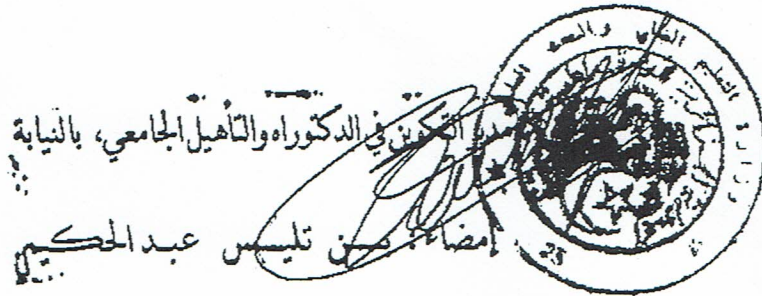 مدير التكوين في الدكتوراه والتأهيل الجامعي، بالنيابة
إمضاء: بـن تليـس عبـد الحكـيم